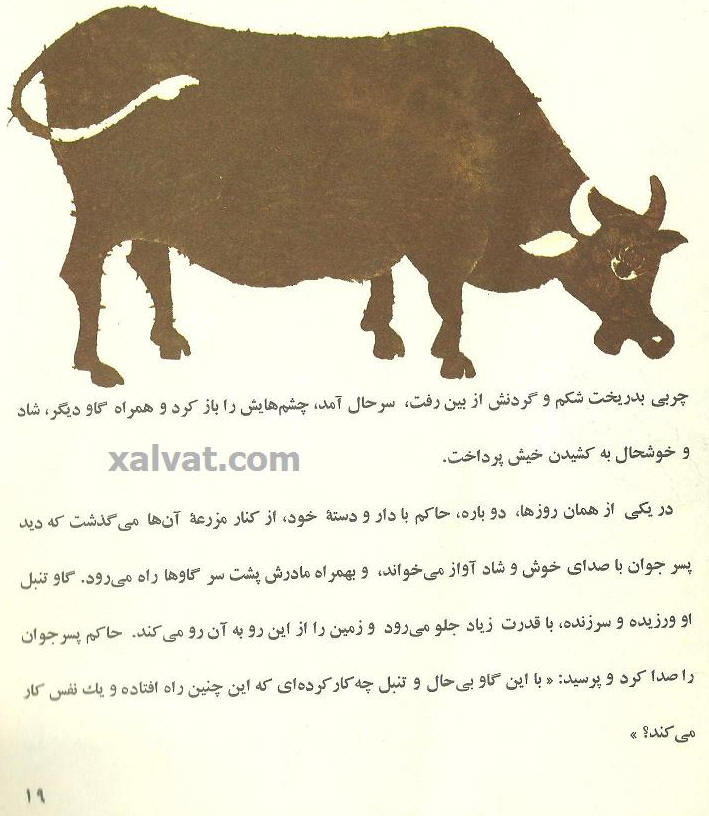 چربی بدریخت شکم و گردنش از بین رفت، سرحال آمد، چشم‌هایش را باز کرد و همراه گاو دیگر، شاد
و خوشحال به کشیدن خیش پرداخت.
xalvat.com
در یکی از همان روزها، دو باره، حاکم با دار و دستهٔ خود، از کنار مزرعهٔ آن‌ها می‌گذشت که دید
پسر جوان با صدای خوش و شاد آواز می‌خواند، و بهمراه مادرش پشت سر گاوها راه می‌رود. گاو تنبل
او ورزیده و سرزنده، با قدرت زیاد جلو می‌رود و زمین را از این رو به آن رو می‌کند. حاکم پسر جوان
را صدا کرد و پرسید: « با این گاو بی‌حال و تنبل چه کار کرده‌ای که این چنین راه افتاده و یك نفس کار
می‌کند؟ »
۱۹